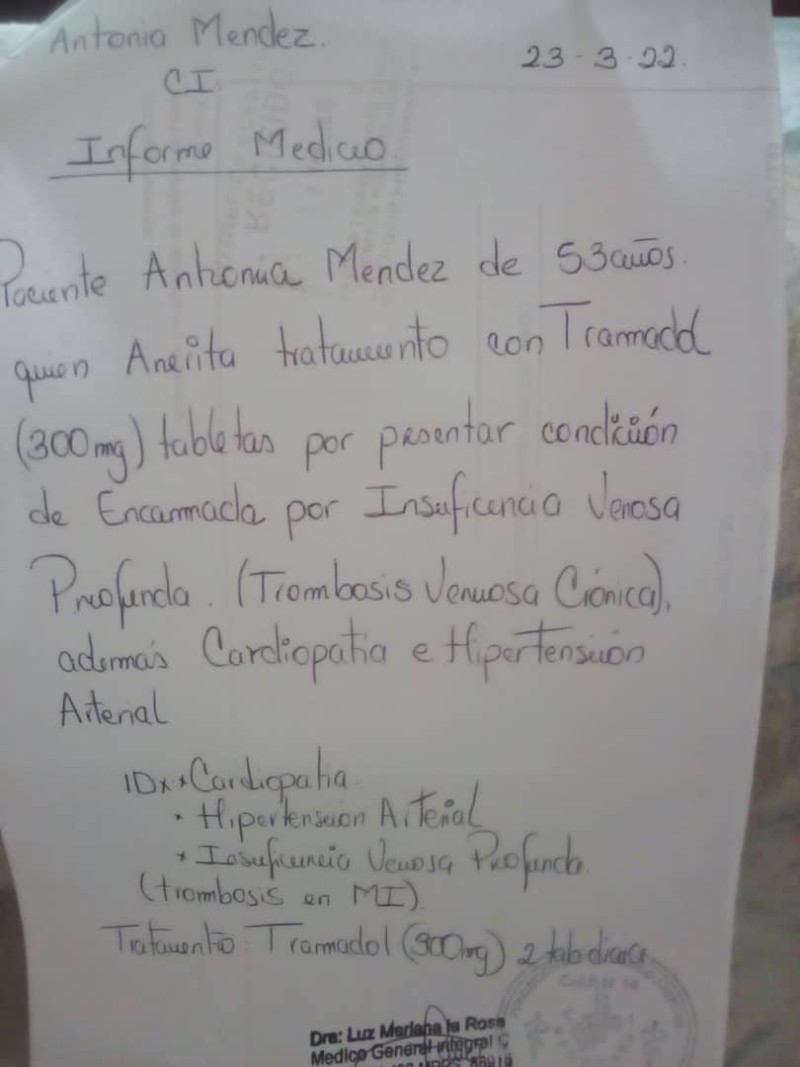 Antonia Mendez.
23-3-22.
CI.
Informe Medico.
Paciente Antonia Mendez de 53 años.
quien Amerita tratamiento con Tramadol
(300mg) tabletas por presentar condición
de Encamada por Insuficencia Venosa
Profunda. (Trombosis Venuosa Crónica),
además Cardiopatia e Hipertensión
Arterial
IDx * Cardiopatia
* Hipertension Arterial
* Insuficiencia Venosa Profunda.
(trombosis en MI).
Tratamento Tramadol (300mg) 2 tab diaria
Dra: Luz Mariana la Rosa
Medico General Integral